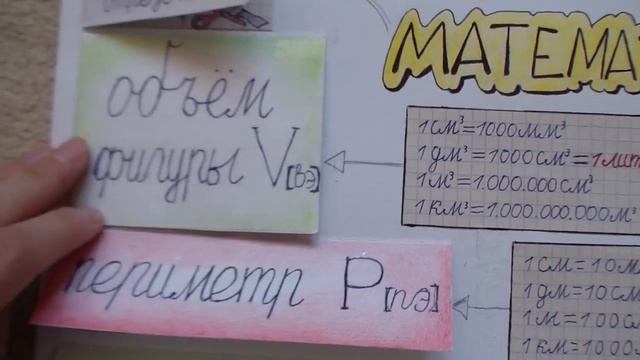 объём
фигуры V[вэ]
МАТЕМА
1см³=1000мм³
1дм³=1000см³=1лит
1м³=1.000.000см³
1км³=1.000.000.000м³
периметр P[пэ]
1см=10м
1дм=10см
1м=100с
1км=1000